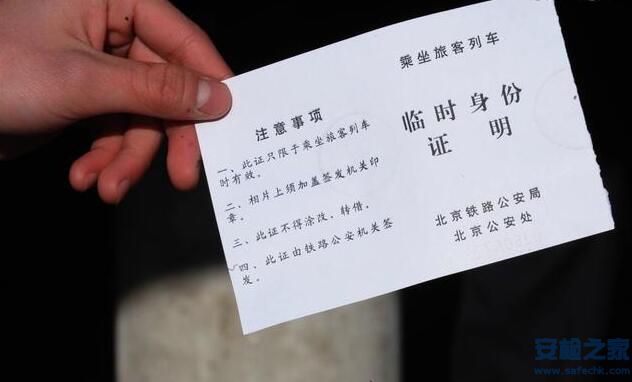 注意事项
一、此证只限于乘坐旅客列车
时有效。
二、相片上须加盖签发机关印
章。
三、此证不得涂改、转借。
四、此证由铁路公安机关签
发。
乘坐旅客列车
临时身份
证明
北京铁路公安局
北京公安处
安检之家
www.safechk.com